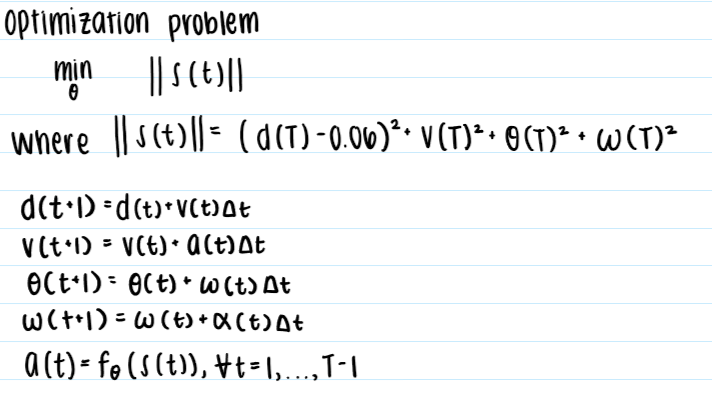 Optimization problem
min θ ||s(t)||
where ||s(t)|| = (d(T) - 0.06)² + v(T)² + θ(T)² + ω(T)²
d(t+1) = d(t) + v(t)Δt
v(t+1) = v(t) + a(t)Δt
θ(t+1) = θ(t) + ω(t)Δt
ω(t+1) = ω(t) + α(t)Δt
a(t) = fθ(s(t)), ∀t = 1, ..., T-1